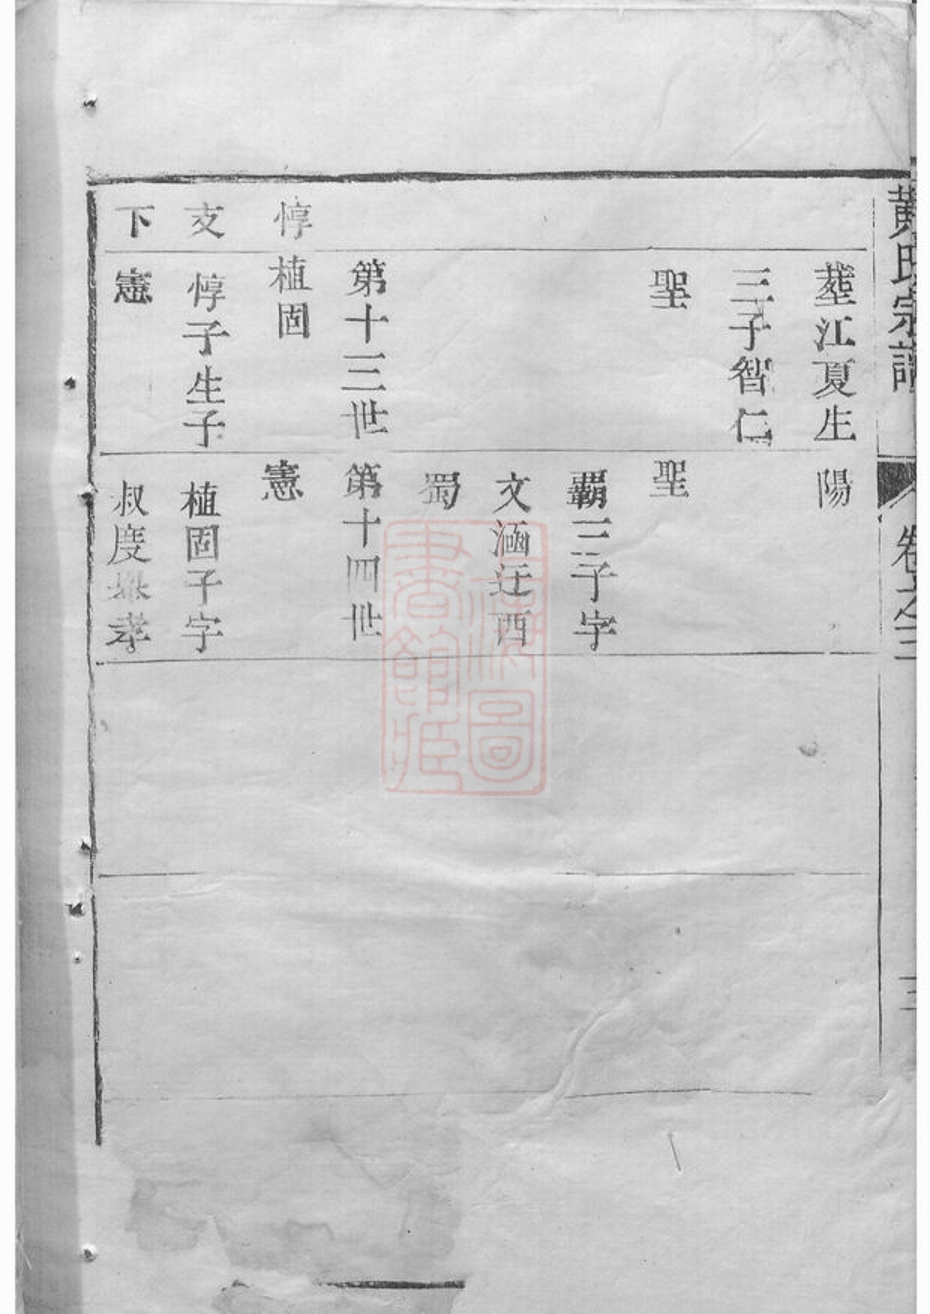 黃氏宗譜
卷之三
三
葬江夏生
三子智仁
聖
第十三世
植固
惇子生子
憲
惇
支
下
陽
聖
霸三子字
文涵迁西
蜀
第十四世
憲
植固子字
叔度孝